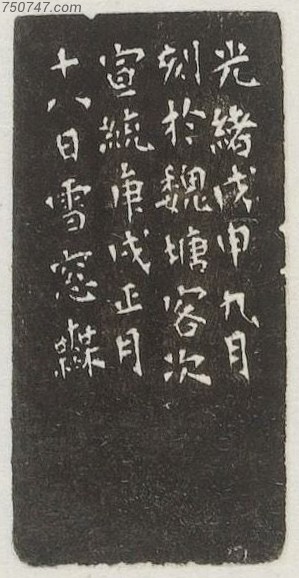 750747.com
光緒戊申九月
刻於魏塘客次
宣統庚戌正月
十八日雪窓